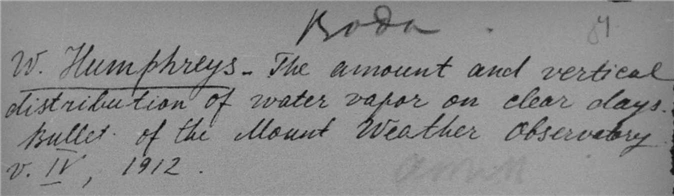 Вода
W. Humphreys - The amount and vertical
distribution of water vapor on clear days.
Bullet. of the Mount Weather Observatory
v. IV, 1912.